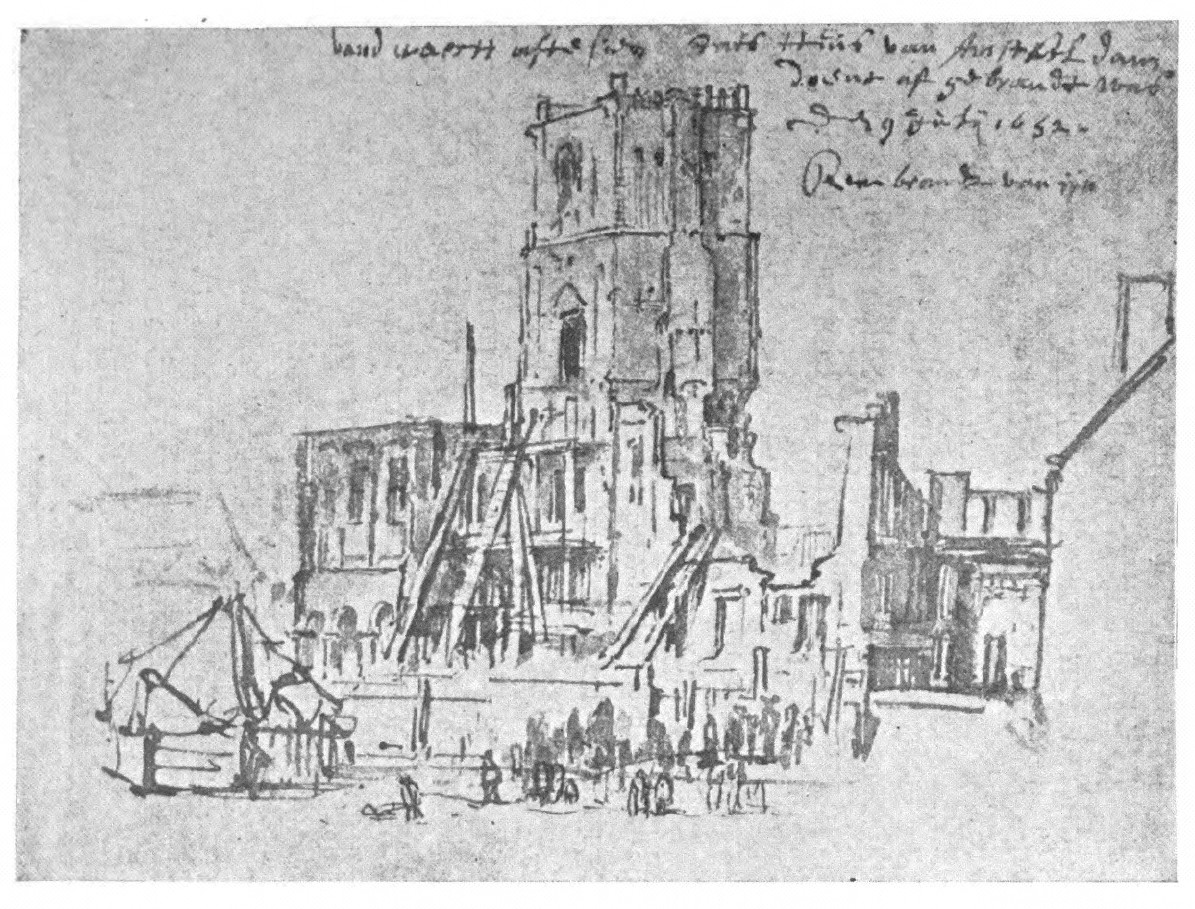 vand waegh afte sien stats Huis van Amsteldam
doent af gebrandt was
den 9 Julij 1652.
Rembrandt van rijn